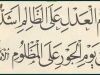 م العدل على الظالم اشد
يوم الجور على المظلوم